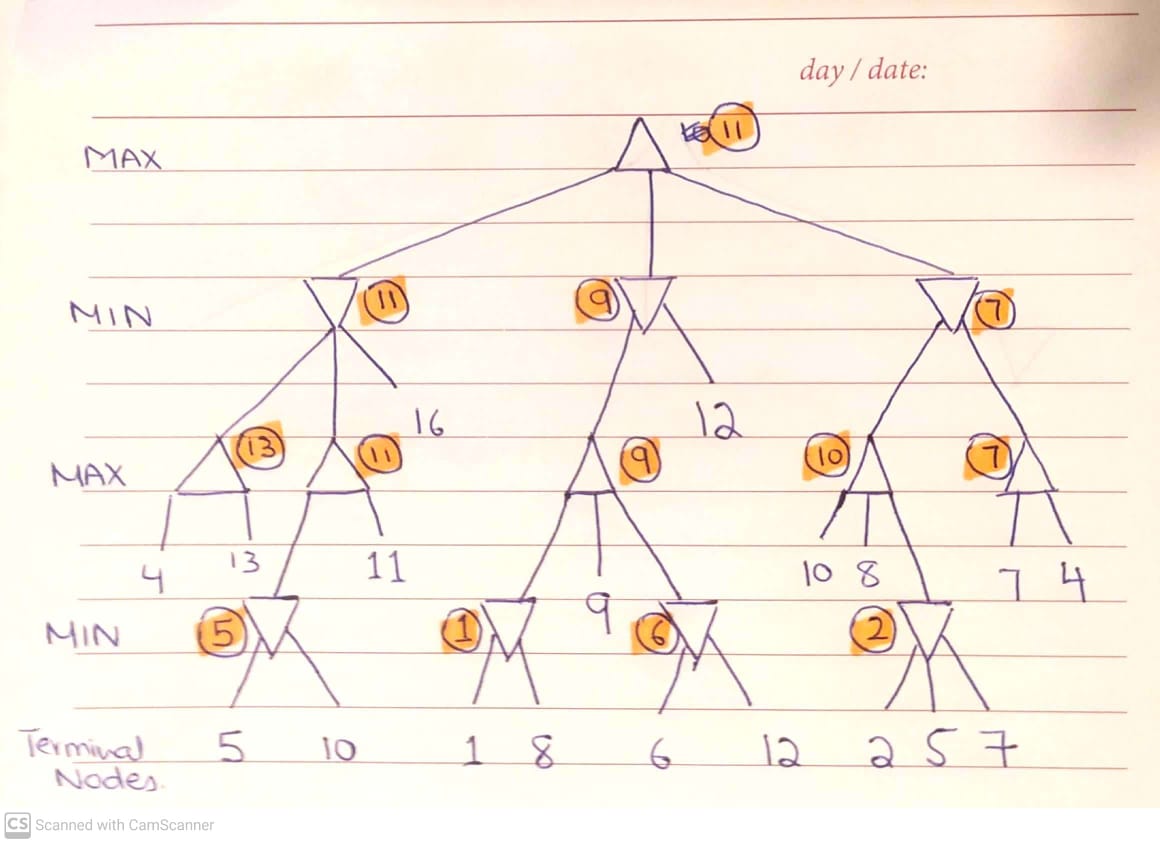 day / date:
11
MAX
MIN 11 9 7
16 12
MAX 13 11 9 10 7
4 13 11 9 10 8 7 4
MIN 5 1 6 2
Terminal 5 10 1 8 6 12 2 5 7
Nodes.
CS Scanned with CamScanner